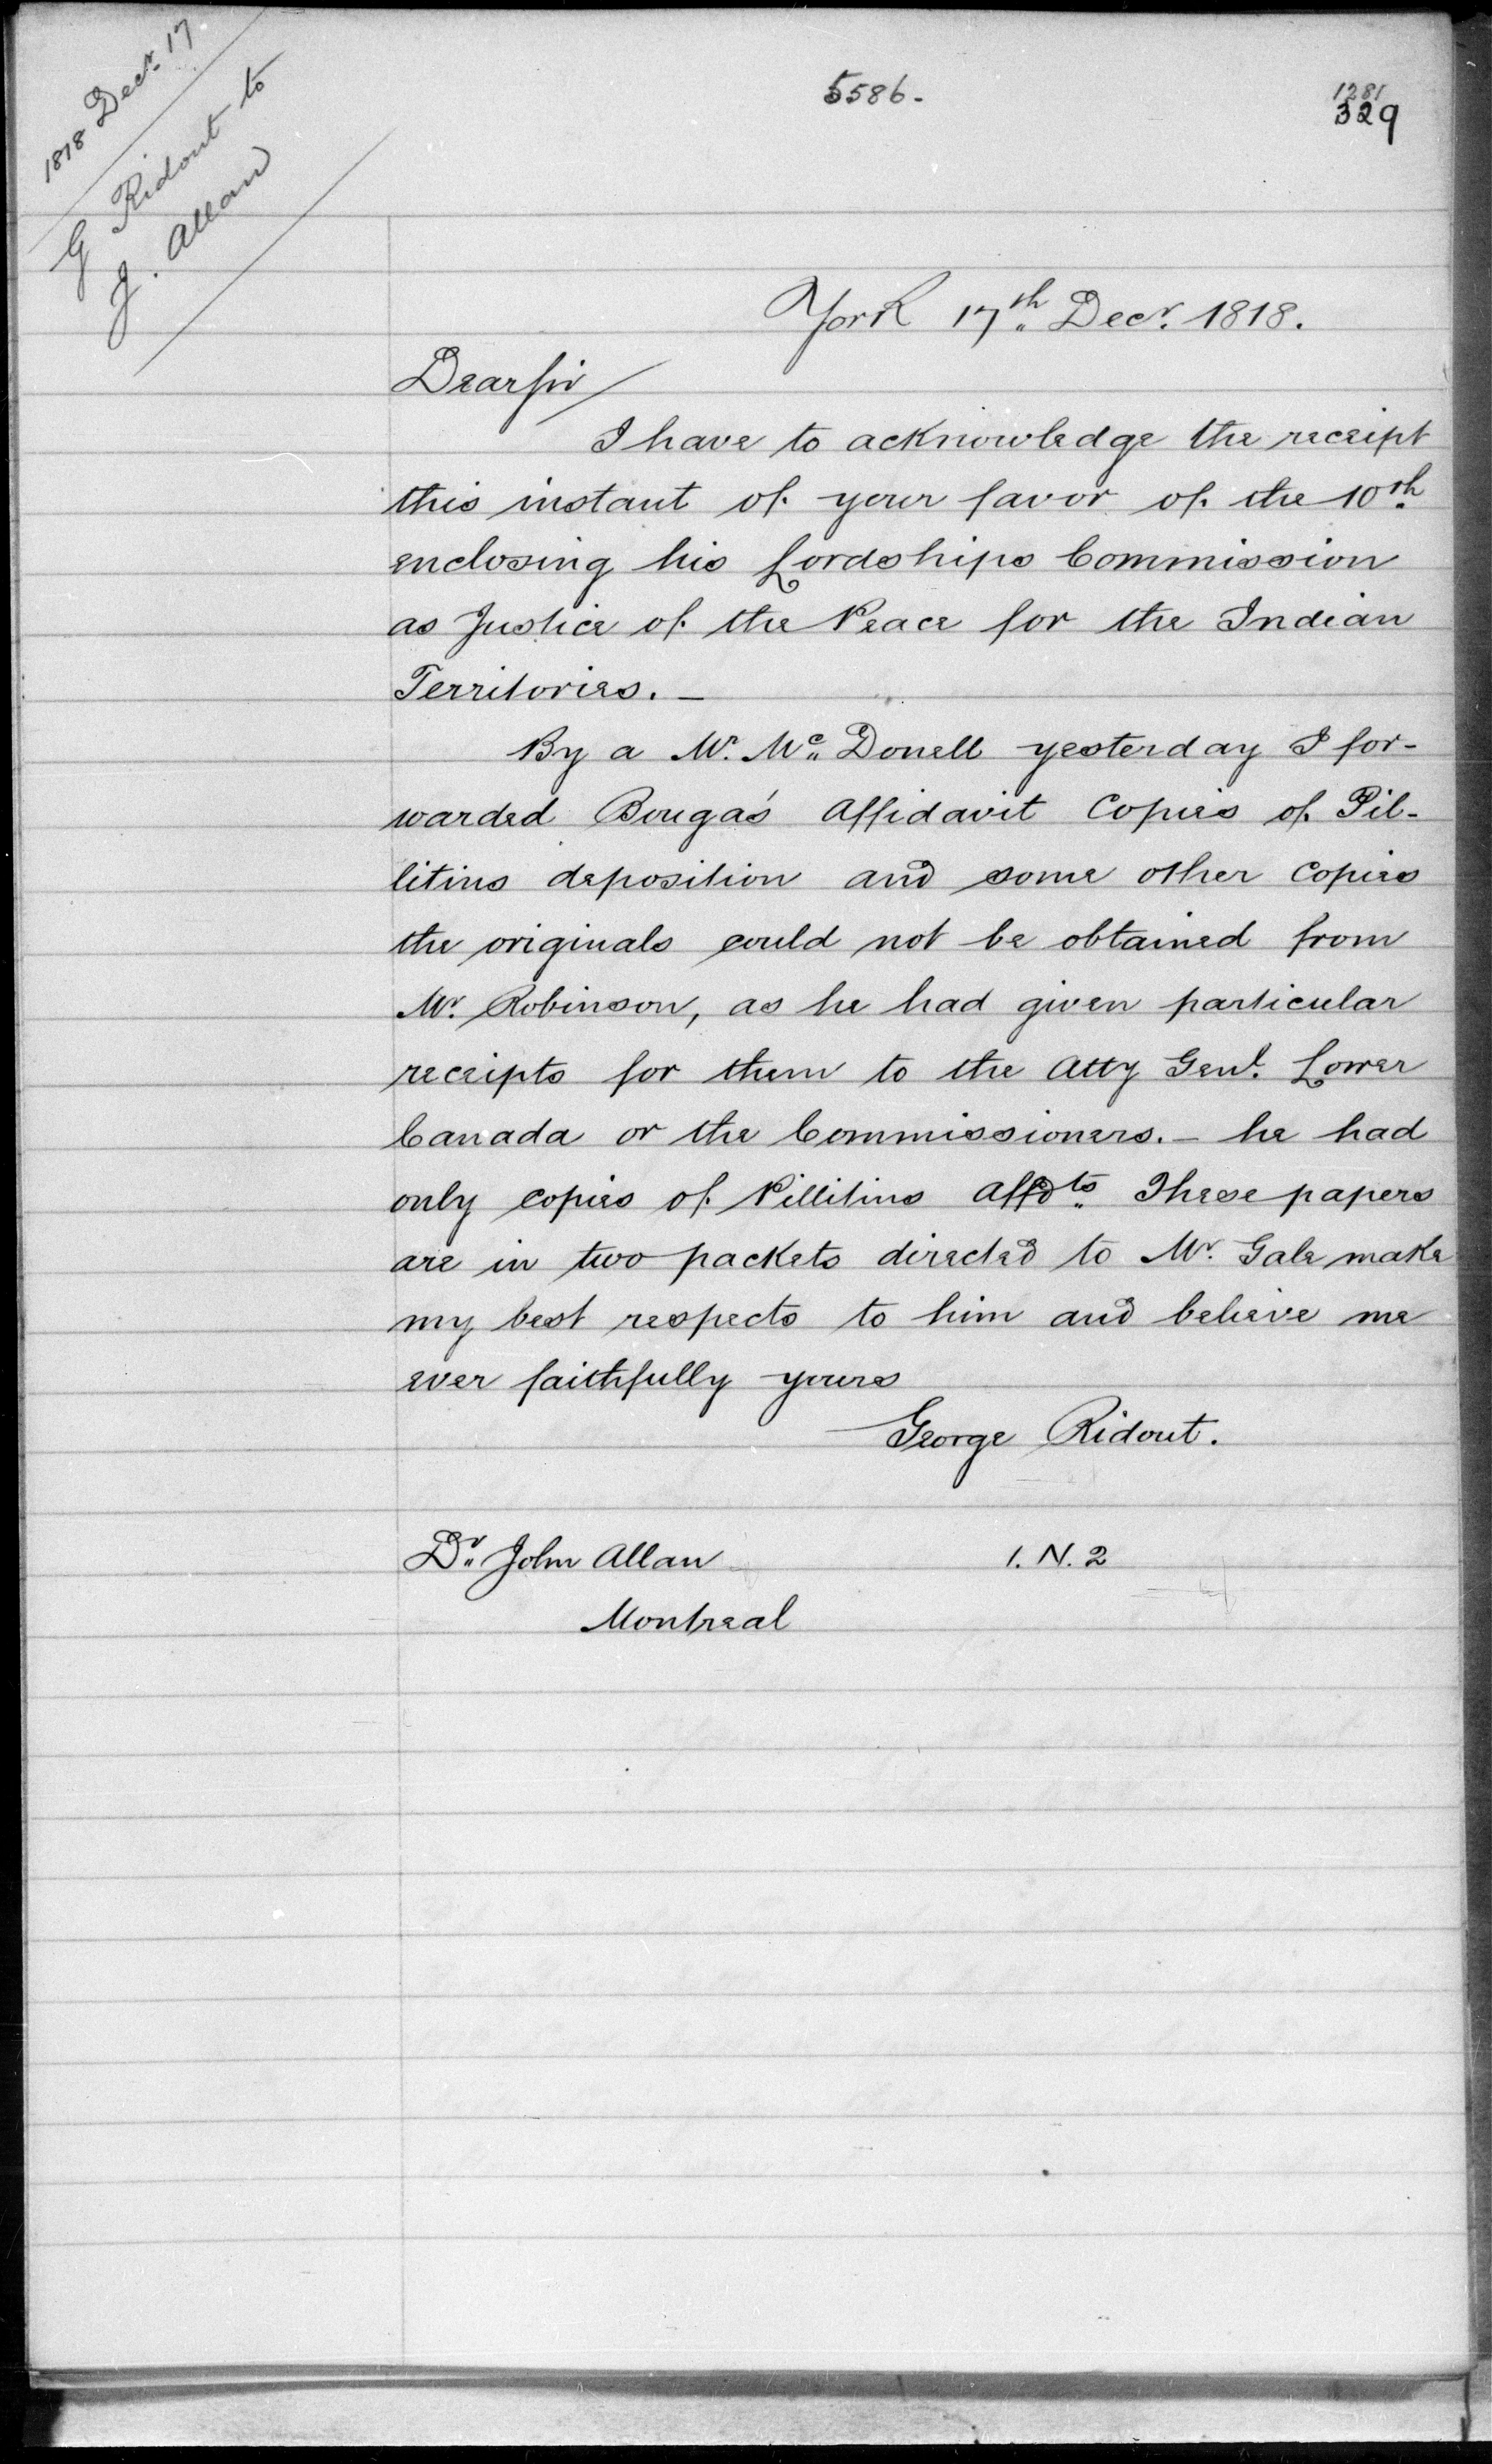 1818 Decr. 17
G Ridout to
J. Allan
5586.
1281
329
York 17th Decr. 1818.
Dear Sir/
I have to acknowledge the receipt
this instant of your favor of the 10th
enclosing his Lordships Commission
as Justice of the Peace for the Indian
Territories. —
By a Mr. Mc Donell yesterday I for-
warded Bouga's Affidavit Copies of Pil-
litins deposition and some other Copies
the originals could not be obtained from
Mr. Robinson, as he had given particular
receipts for them to the Atty Genl. Lower
Canada or the Commissioners. — he had
only copies of Pillitins Affdts These papers
are in two packets directed to Mr. Gale make
my best respects to him and believe me
ever faithfully yours
George Ridout.
Dr. John Allan 1. N. 2
Montreal